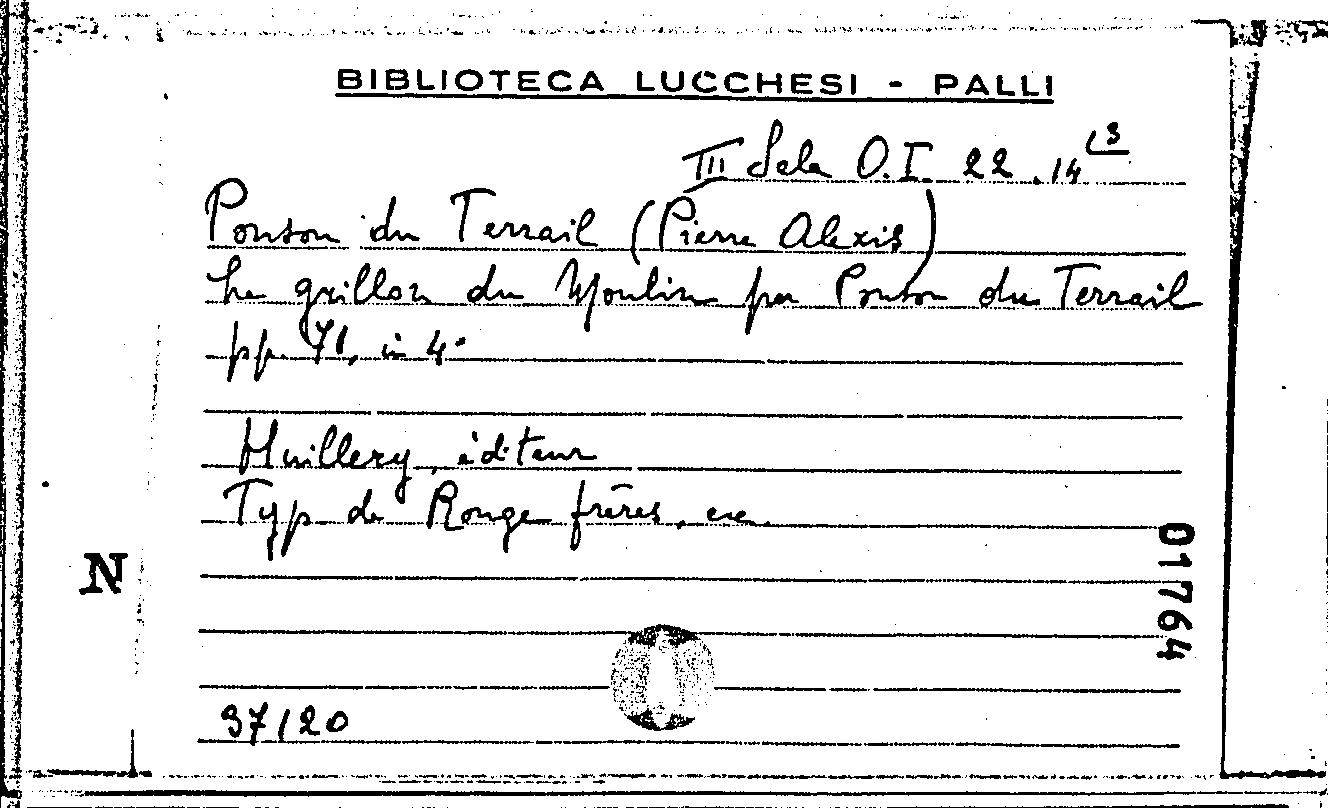 BIBLIOTECA LUCCHESI - PALLI
III Sala O.I. 22.14 (3
Ponson du Terrail (Pierre Alexis)
Le grillon du Moulin par Ponson du Terrail
pp. 71, in 4°
Huillery, éditeur
Typ de Rouge frères,
N
01764
37120